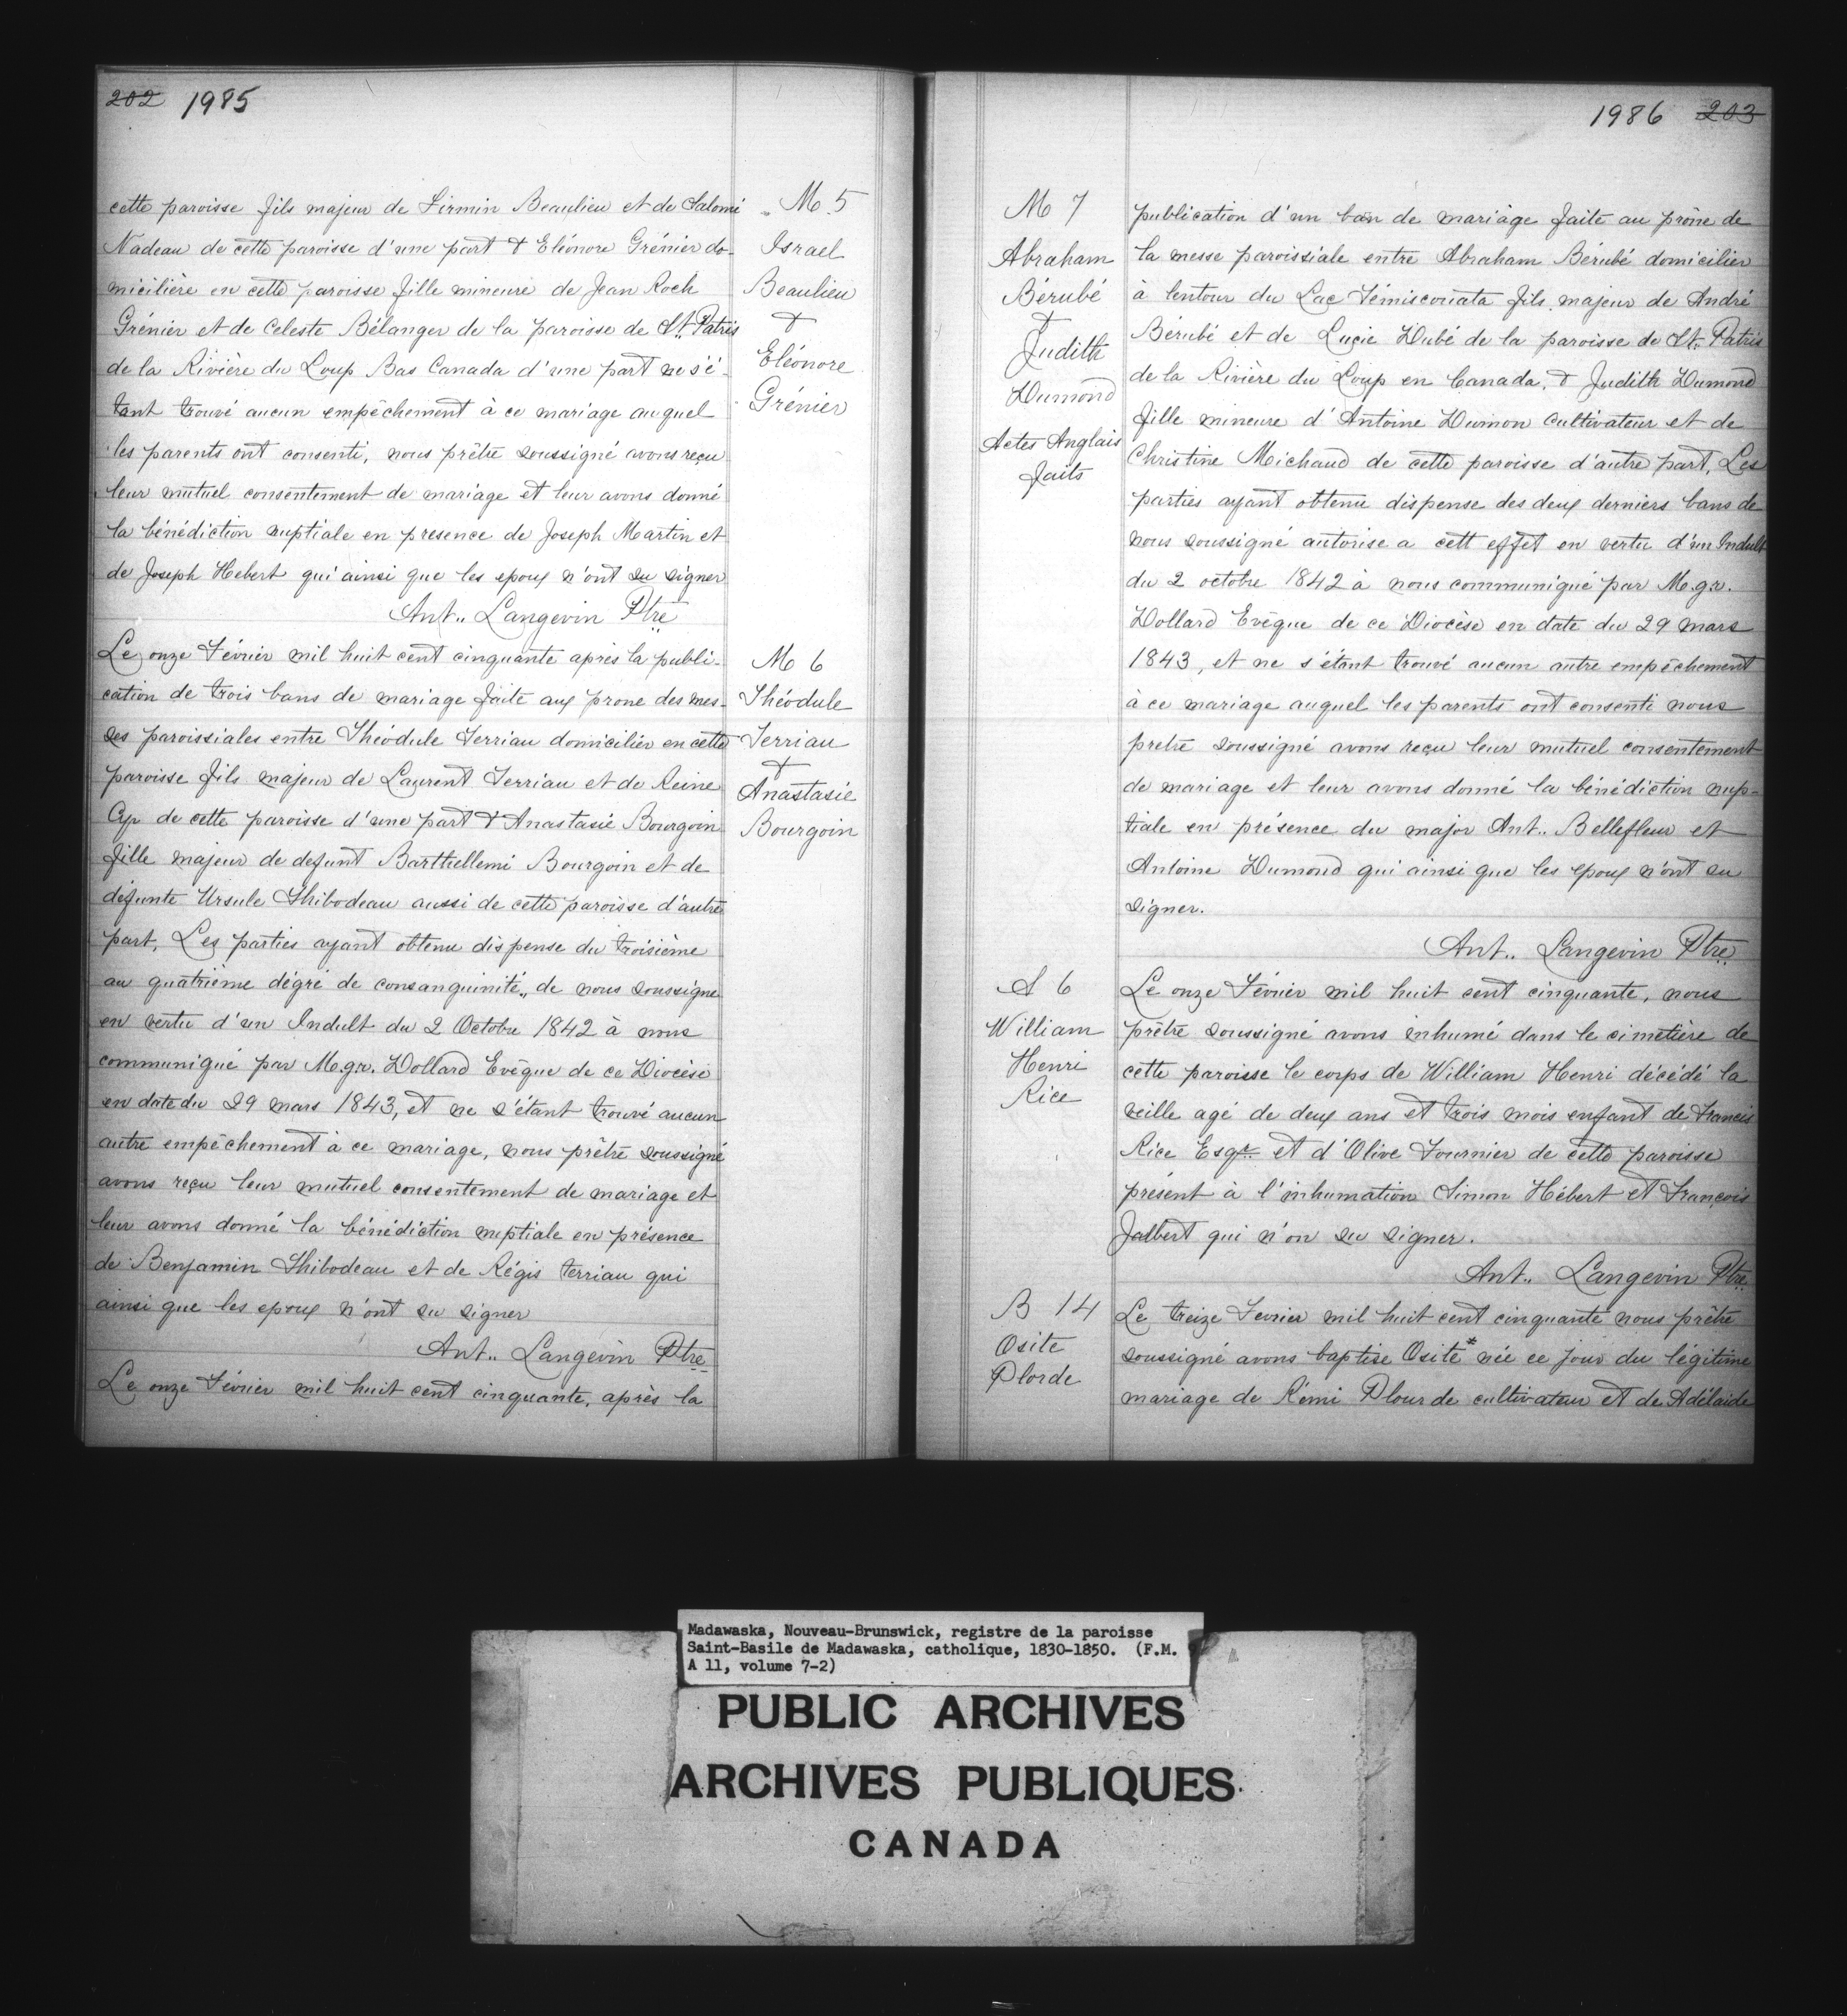 202 1985
cette paroisse fils majeur de Firmin Beaulieu et de Salomé
Nadeau de cette paroisse d'une part & Eléonore Grénier do-
micilière en cette paroisse fille mineure de Jean Roch
Grénier et de Celeste Bélanger de la paroisse de St. Patris
de la Rivière du Loup Bas Canada d'une part ne s'é-
tant trouvé aucun empêchement à ce mariage auquel
les parents ont consenti, nous prêtre soussigné avons reçu
leur mutuel consentement de mariage et leur avons donné
la bénédiction nuptiale en presence de Joseph Martin et
de Joseph Hebert qui ainsi que les epoux n'ont su signer
Ant.. Langevin Ptre
M. 5
Israel
Beaulieu
&
Eléonore
Grénier
Le onze Février mil huit cent cinquante après la publi-
cation de trois bans de mariage faite aux prone des mes-
ses paroissiales entre Théodule Terriau domicilier en cette
paroisse fils majeur de Laurent Terriau et de Reine
Cyr de cette paroisse d'une part & Anastasie Bourgoin
fille majeur de defunt Barthellemi Bourgoin et de
défunte Ursule Thibodeau aussi de cette paroisse d'autre
part, Les parties ayant obtenu dispense du troisième
au quatrième dégré de consanguinité,, de nous soussigné
en vertu d'un Indult du 2 Octobre 1842 à nous
communiqué par M.gr. Dollard Evêque de ce Diocèse
en date du 29 mars 1843, et ne s'étant trouvé aucun
autre empêchement à ce mariage, nous prêtre soussigné
avons reçu leur mutuel consentement de mariage et
leur avons donné la bénédiction nuptiale en présence
de Benjamin Thibodeau et de Régis terriau qui
ainsi que les epoux n'ont su signer
Ant.. Langevin Ptre
M 6
Théodule
Terriau
&
Anastasie
Bourgoin
Le onze Février mil huit cent cinquante, après la
1986 203
M 7
Abraham
Bérubé
&
Judith
Dumond
Actes Anglais
faits
publication d'un ban de mariage faite au prône de
la messe paroissiale entre Abraham Bérubé domicilier
à lentour du Lac Témiscouata fils majeur de André
Bérubé et de Lucie Dubé de la paroisse de St. Patris
de la Rivière du Loup en Canada, & Judith Dumond
fille mineure d'Antoine Dumon cultivateur et de
Christine Michaud de cette paroisse d'autre part, Les
parties ayant obtenu dispense des deux derniers bans de
nous soussigné autorise a cett effet en vertu d'un Indult
du 2 octobre 1842 à nous communiqué par M.g.r.
Dollard Evêque de ce Diocèse en date du 29 mars
1843, et ne s'étant trouvé aucun autre empêchement
à ce mariage auquel les parents ont consenti nous
pretre soussigné avons reçu leur mutuel consentement
de mariage et leur avons donné la bénédiction nup-
tiale en présence du major Ant.. Bellefleur et
Antoine Dumond qui ainsi que les epoux n'ont su
signer.
Ant.. Langevin Ptre
S 6
William
Henri
Rice
Le onze Février mil huit cent cinquante, nous
prêtre soussigné avons inhumé dans le cimetière de
cette paroisse le corps de William Henri décédé la
veille agé de deux ans et trois mois enfant de Francis
Rice Esqr et d'Olive Fournier de cette paroisse
présent à l'inhumation Simon Hébert et François
Jalbert qui n'on su signer.
Ant.. Langevin Ptre
B 14
Osite
Plorde
Le treize Fevrier mil huit cent cinquante nous prêtre
soussigné avons baptise Osite* née ce jour du légitime
mariage de Rémi Plourde cultivateur et de Adélaide
Madawaska, Nouveau-Brunswick, registre de la paroisse
Saint-Basile de Madawaska, catholique, 1830-1850. (F.M.
A 11, volume 7-2)
PUBLIC ARCHIVES
ARCHIVES PUBLIQUES
CANADA